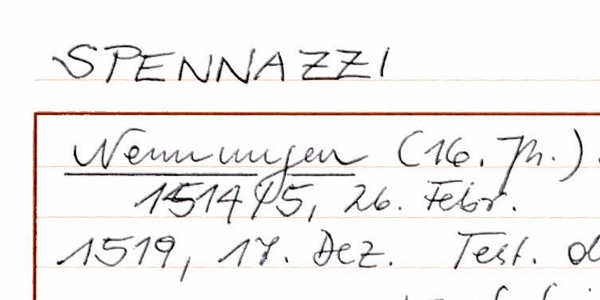 SPENNAZZI
Nennungen (16. Jh.).
1514/15, 26. Febr.
1519, 17. Dez. Test. d